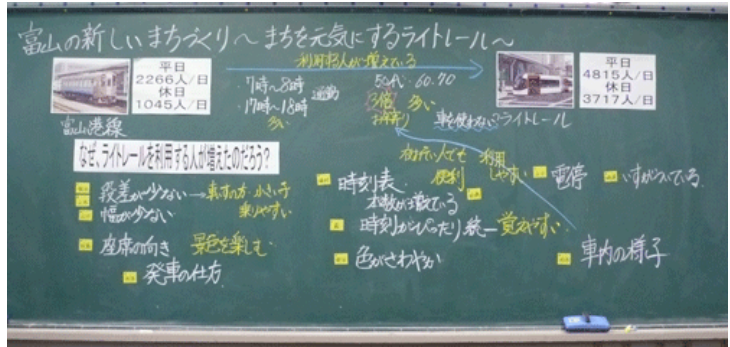 富山の新しいまちづくり～まちを元気にするライトレール～
利用する人が増えている
平日
2266人/日
休日
1045人/日
富山港線
・7時～8時
・17時～18時
通勤
多い
50代・60.70
3倍 多い
お年寄り
車を使わない?
ライトレール
平日
4815人/日
休日
3717人/日
なぜ、ライトレールを利用する人が増えたのだろう?
段差が少ない→車いすの方 小さい子
乗りやすい
幅が少ない
座席の向き 景色を楽しむ
発車の仕方
時刻表
本数が増えている
時刻がぴったり統一 覚えやすい
色がさわやか
人でも
便利
利用
しやすい
電停
いすがついている
車内の様子